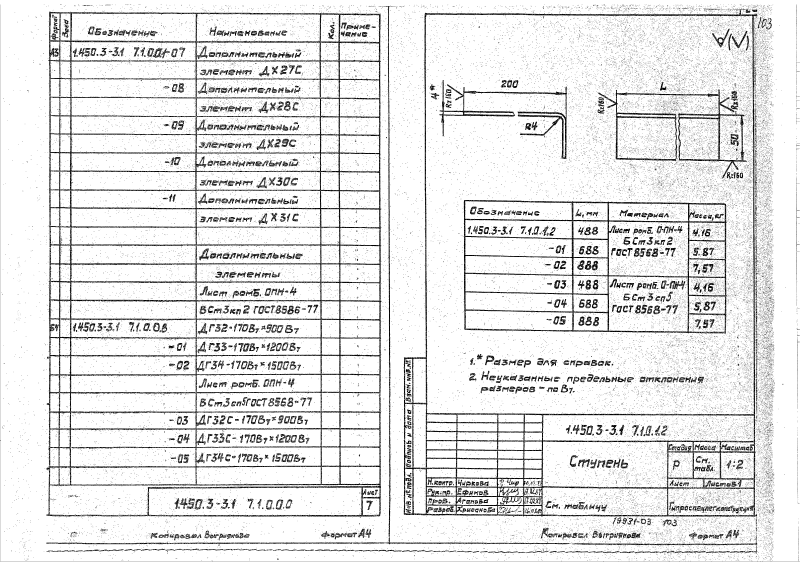 Формат
Зона
Обозначение
Наименование
Кол.
Приме-
чание
А3 1.450.3-3.1 7.1.0.0.1-07 Дополнительный
элемент ДХ27С
-08 Дополнительный
элемент ДХ28С
-09 Дополнительный
элемент ДХ29С
-10 Дополнительный
элемент ДХ30С
-11 Дополнительный
элемент ДХ31С
Дополнительные
элементы
Лист ромб. ОПН-4
ВСт3кп2 ГОСТ8586-77
БЧ 1.450.3-3.1 7.1.0.0.8 ДГ32-170Вт×900Вт
-01 ДГ33-170Вт×1200Вт
-02 ДГ34-170Вт×1500Вт
Лист ромб. ОПН-4
ВСт3сп5ГОСТ8568-77
-03 ДГ32С-170Вт×900Вт
-04 ДГ33С-170Вт×1200Вт
-05 ДГ34С-170Вт×1500Вт
1.450.3-3.1 7.1.0.0.0
Лист
7
Копировал Выгрияхова Формат А4
103
√(√)
4*
Rz160
200
R4
L
Rz160
Rz160
50
Rz160
Обозначение L, мм Материал Масса, кг
1.450.3-3.1 7.1.0.1.2 488 Лист ромб. О-ПН-4 4,16
БСт3кп2
-01 688 ГОСТ8568-77 5.87
-02 888 7,57
-03 488 Лист ромб. О-ПН4 4,16
БСт3сп5
-04 688 ГОСТ8568-77 5,87
-05 888 7,57
1.* Размер для справок.
2. Неуказанные предельные отклонения
размеров - по Вт.
Взам. инв. №
Подпись и дата
Инв. № подл.
1.450.3-3.1 7.1.0.1.2
Ступень
Стадия Масса Масштаб
Р См. табл. 1:2
Лист Листов 1
Н.контр. Чиркова
Рук.пр. Ефимов
Пров. Агапова
Разраб. Хрисанова
См. таблицу
Гипроспецлегконструкция
19931-03 103
Копировал Выгрияхова Формат А4